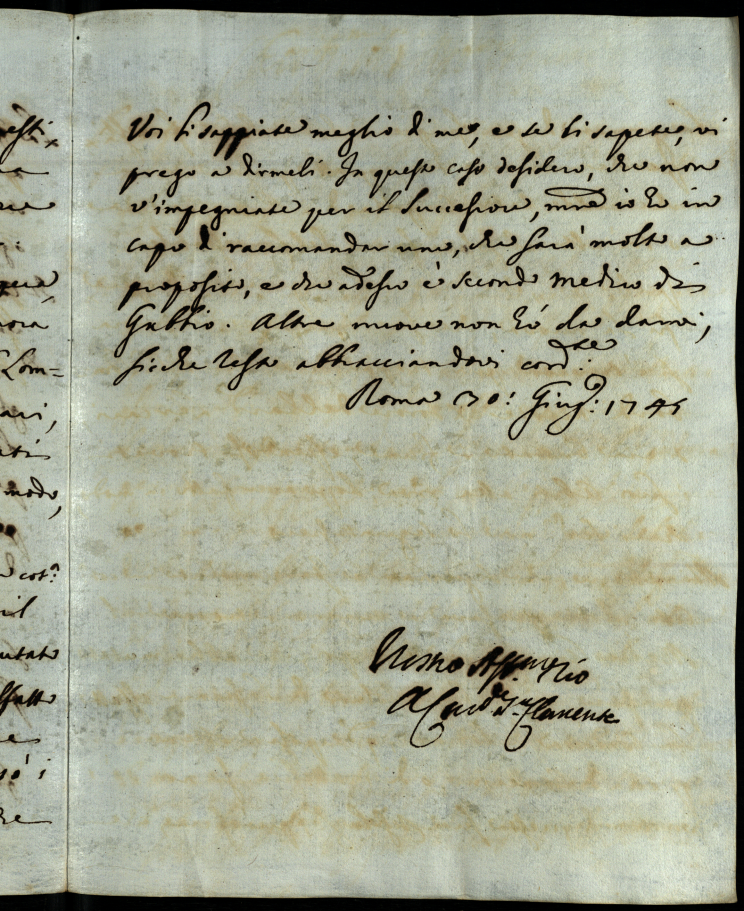 Voi li sappiate meglio di me, e se li sapete, vi
prego a dirmeli. In questo caso desidero, che non
v'impegniate per il Successore, mntre io ho in
capo di raccomandar uno, che sarà molto a
proposito, e che adesso è secondo medico di
Gubbio. Altre nuove non hò da darvi,
sicche resto abbracciandovi cord.te
Roma 30: Giug.o: 1745
Vostro Aff.mo Zio
A Card.
esti
na
ora
Lom=
ari,
modo,
il
utato
sò i